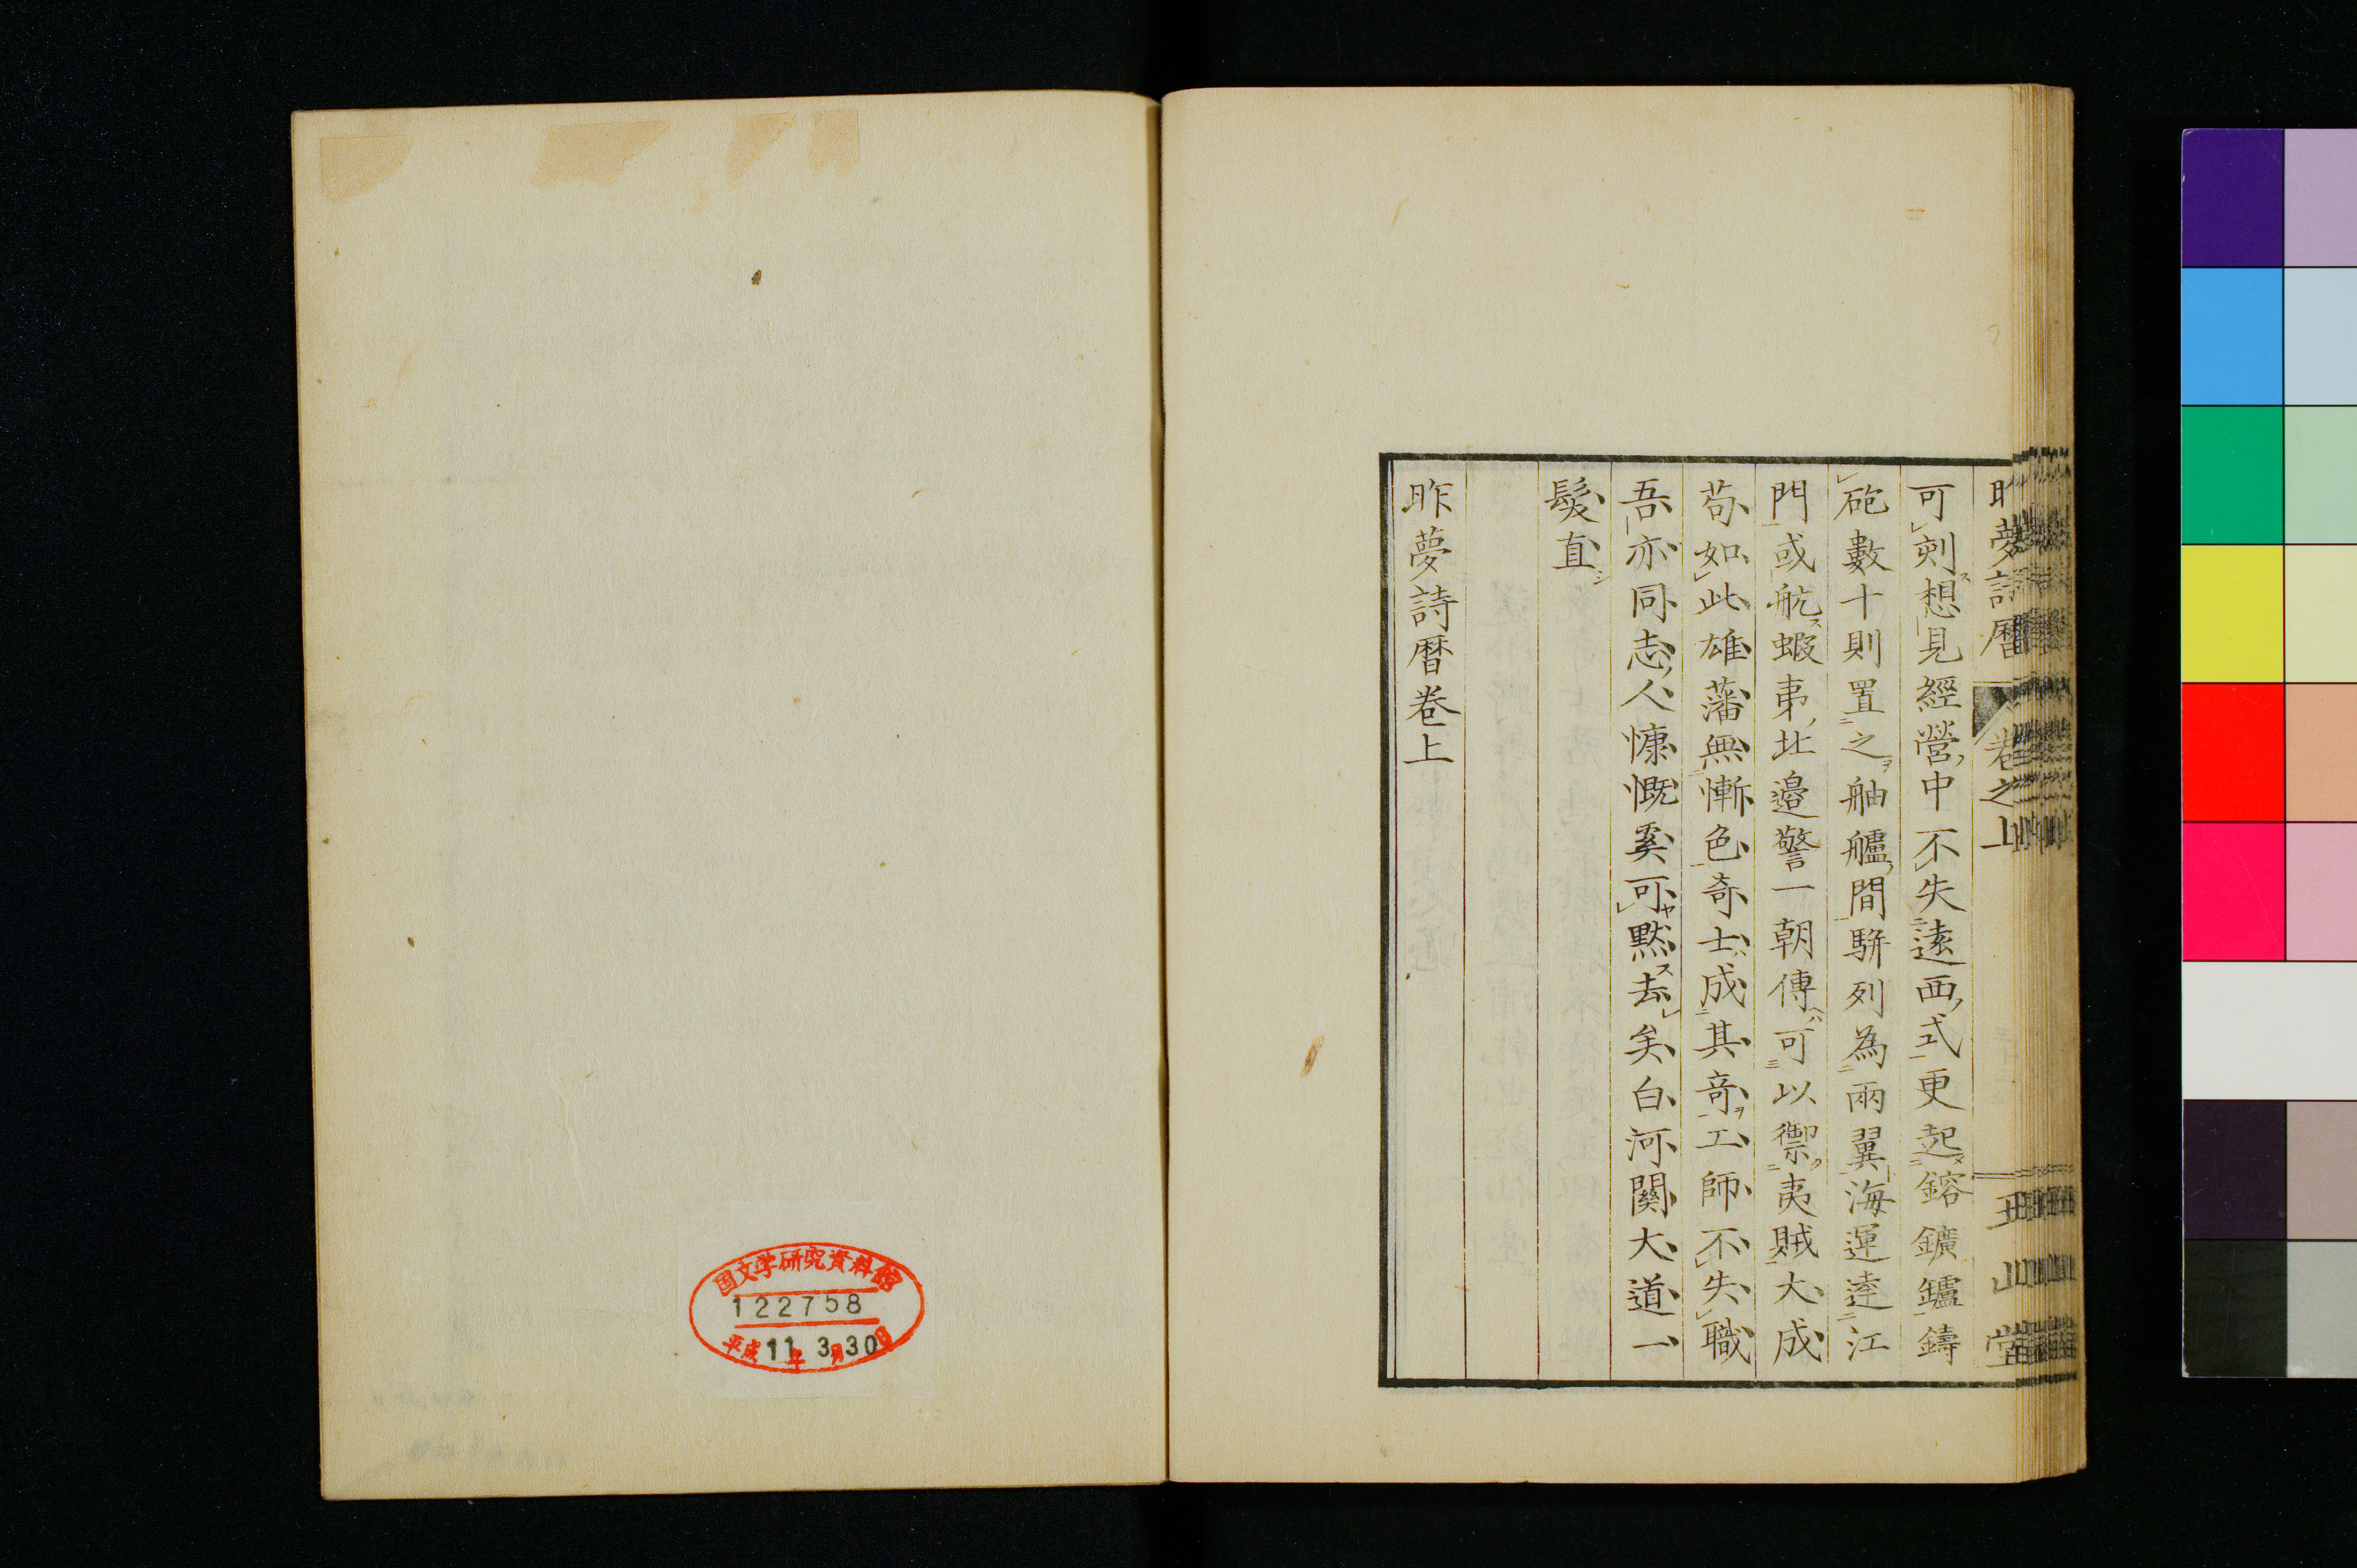 昨夢詩暦 卷之上 玉山堂
可剡想見經營中不失遠西式更起鎔鑛鑪鑄
砲數十則置之舳艫間駢列為兩翼海運達江
門或航蝦夷北邊警一朝傳可以禦夷賊大成
苟如此雄藩無慚色奇士成其奇工師不失職
吾亦同志人慷慨奚可默去矣白河關大道一
髮直
昨夢詩暦卷上
国文学研究資料館
122758
平成11年3月30日